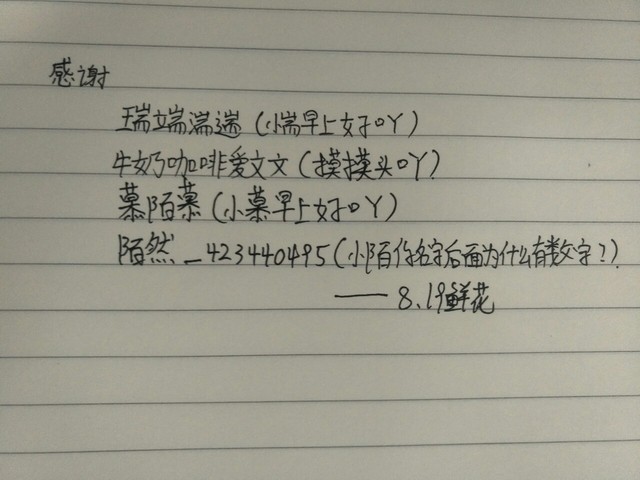 感谢
瑞端湍遄（小湍早上好吖）
牛奶咖啡爱文文（摸摸头吖）
慕陌慕（小慕早上好吖）
陌然_423440495（小陌你名字后面为什么有数字？）
——8.19鲜花